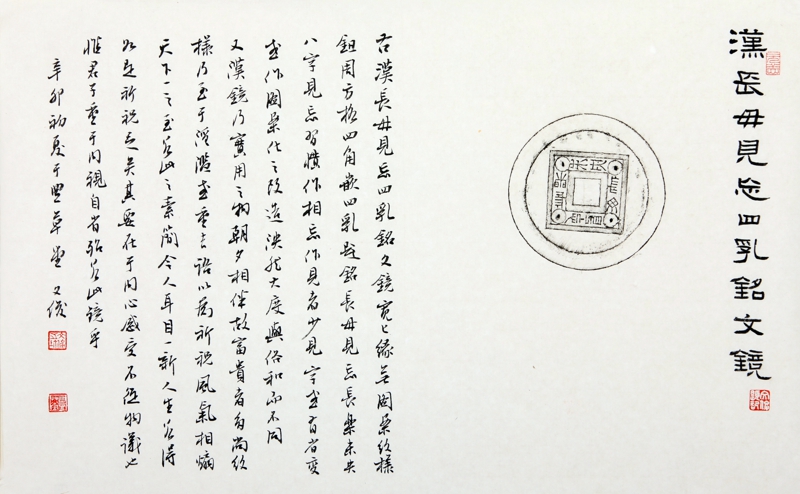 漢長毋見忘四乳銘文鏡
右漢長毋見忘四乳銘文鏡寬上緣無圖案紋樣
鈕周方格四角嵌四乳說銘長毋見忘長樂未央
八字見忘習慣作相忘作見者少見字或有省變
或作圖案化之改造泱然大度與俗和而不同
又漢鏡乃實用之物朝夕相伴故富貴者多尚紋
樣乃至于泛濫或重吉語以為祈祝風氣相煽
天下一之至若此之素簡令人耳目一新人生若得
如是祈祝足矣其要在于內心感受不從物議也
惟君子重于內視自省殆若此鏡乎
辛卯初夏于豐草堂 文俊